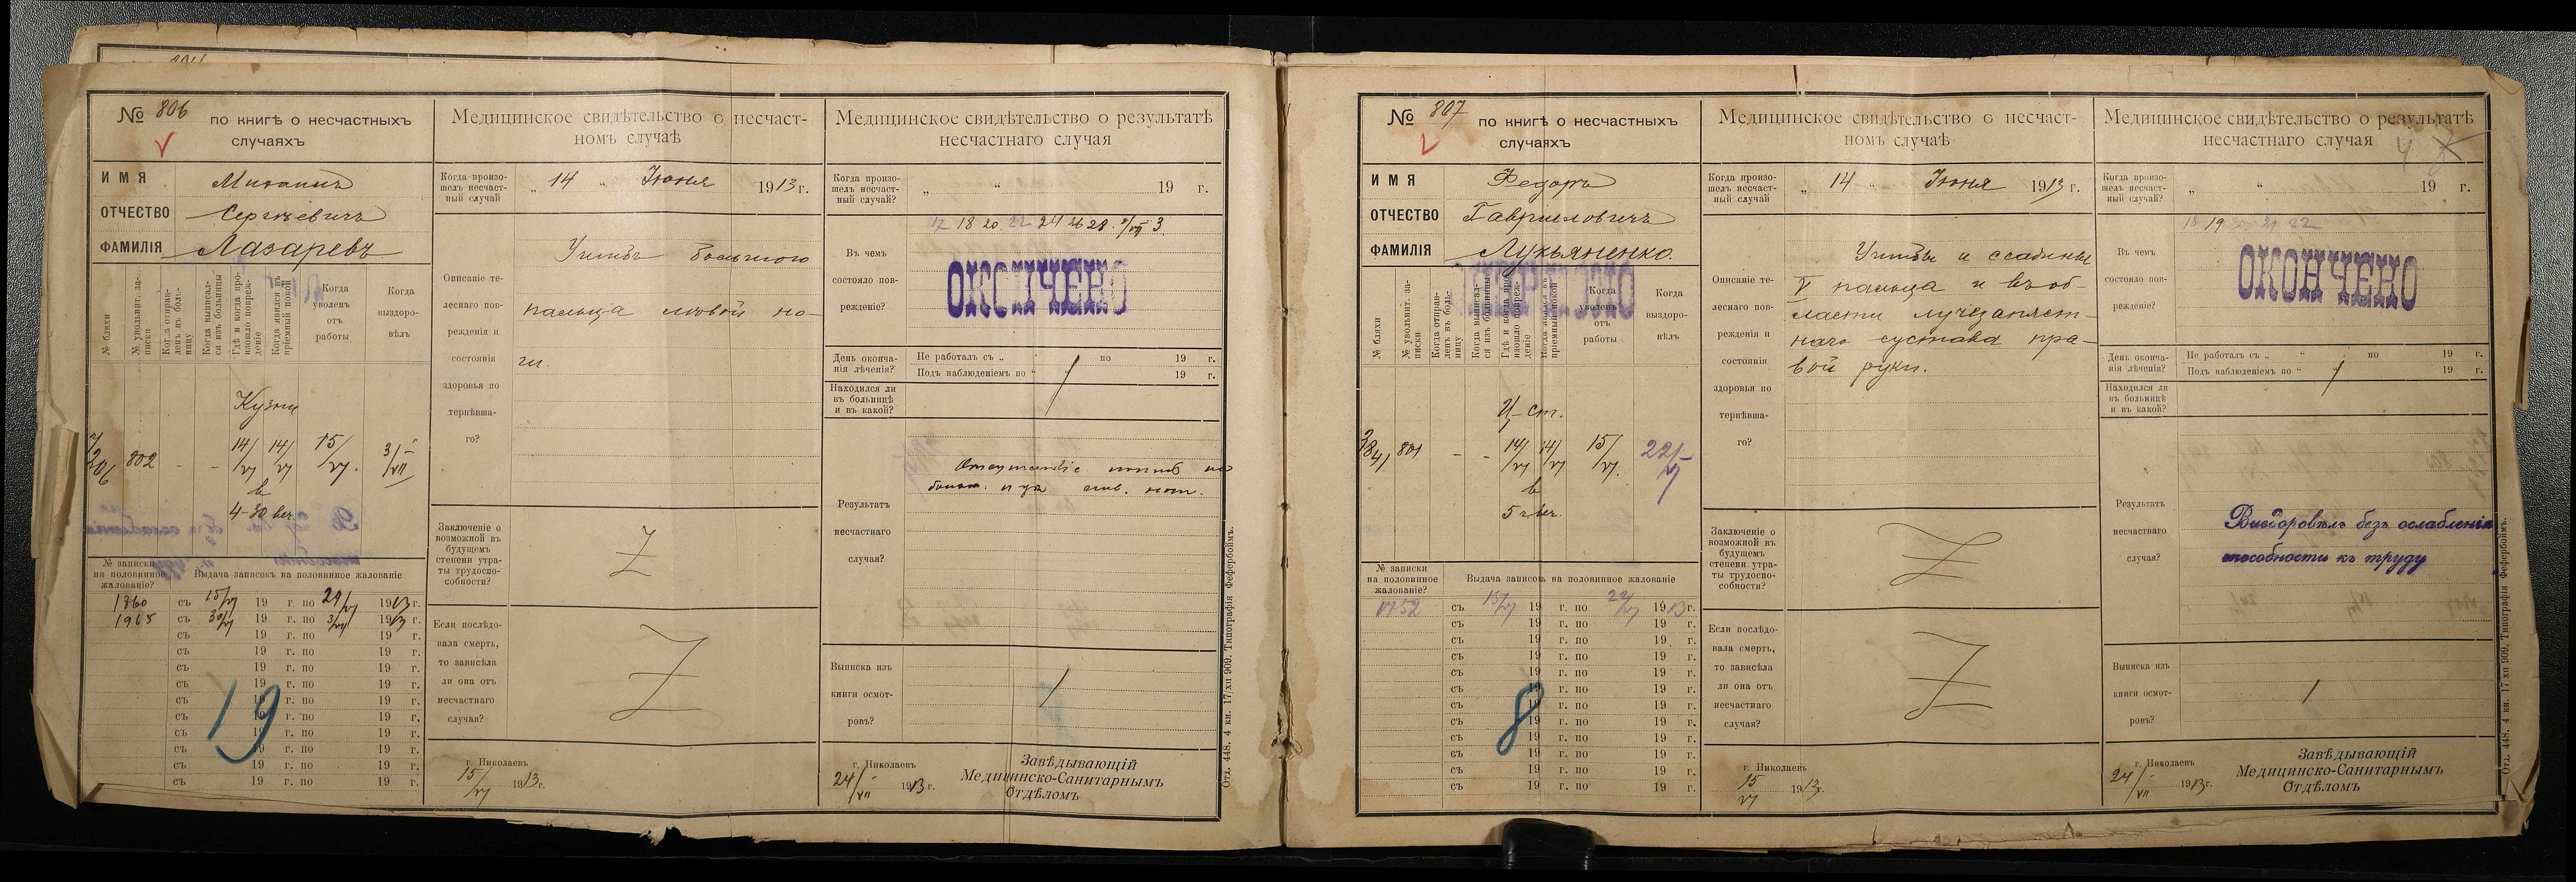 № 806 по книгѣ о несчастныхъ
случаяхъ
ИМЯ Михаилъ
ОТЧЕСТВО Сергѣевичъ
ФАМИЛІЯ Лазаревъ
№ бляхи
№ увольнит. за-
писки
Когда отправ-
ленъ въ боль-
ницу
Когда выписал-
ся изъ больницы
Гдѣ и когда про-
изошло повреж-
деніе
Когда явился въ
пріемный покой
Когда
уволенъ
отъ
работы
Когда
выздоро-
вѣлъ
Кузни
7/206 802 - - 14/VI 14/VI 15/VI. 3/VII
в
4-30 веч.
№ записки
на половинное
жалованіе?
Выдача записокъ на половинное жалованіе
1760 съ 15/VI 19 г. по 29/VI 1913 г.
1965 съ 30/VI 19 г. по 3/VII 1913 г.
съ 19 г. по 19 г.
съ 19 г. по 19 г.
съ 19 г. по 19 г.
съ 19 г. по 19 г.
съ 19 г. по 19 г.
съ 19 г. по 19 г.
съ 19 г. по 19 г.
съ 19 г. по 19 г.
съ 19 г. по 19 г.
съ 19 г. по 19 г.
19
Медицинское свидѣтельство о несчаст-
номъ случаѣ
Когда произо-
шелъ несчаст-
ный случай
„ 14 “ Іюня 1913 г.
Описаніе те-
леснаго пов-
режденія и
состоянія
здоровья по
терпѣвша-
го?
Ушибъ большого
пальца лѣвой но-
ги.
Заключеніе о
возможной въ
будущемъ
степени утра-
ты трудоспо-
собности?
Z
Если послѣдо-
вала смерть,
то зависѣла
ли она отъ
несчастнаго
случая?
Z
г. Николаевъ
15/VI 1913 г.
Медицинское свидѣтельство о результатѣ
несчастнаго случая
Когда произо-
шелъ несчаст-
ный случай?
„ “ 19 г.
17 18 20 22 24 26 28. 1/VII 3.
Въ чемъ
состояло пов-
режденіе?
ОКОНЧЕНО
День оконча-
нія лѣченія?
Не работалъ съ „ “ по 19 г.
Подъ наблюденіемъ по “ “ 19 г.
Находился ли
въ больницѣ
и въ какой?
Результатъ
несчастнаго
случая?
Выписка изъ
книги осмот-
ровъ?
г. Николаевъ
24/VII 1913 г.
Завѣдывающій
Медицинско-Санитарнымъ
Отдѣломъ
Отд. 448. 4 кн. 17/хп 909. Типографія Фефербоймъ.
№ 807 по книгѣ о несчастныхъ
случаяхъ
ИМЯ Федоръ
ОТЧЕСТВО Гавриловичъ
ФАМИЛІЯ Лукьяненко.
№ бляхи
№ увольнит. за-
писки
Когда отправ-
ленъ въ боль-
ницу
Когда выписал-
ся изъ больницы
Гдѣ и когда про-
изошло повреж-
деніе
Когда явился въ
пріемный покой
Когда
уволенъ
отъ
работы
Когда
выздоро-
вѣлъ
801 - - 14/VI 14/VI 15/VI. 22/VI
в
5 ч. веч.
№ записки
на половинное
жалованіе?
Выдача записокъ на половинное жалованіе
1752 съ 15/VI 19 г. по 22/VI 1913 г.
съ 19 г. по 19 г.
съ 19 г. по 19 г.
съ 19 г. по 19 г.
съ 19 г. по 19 г.
съ 19 г. по 19 г.
съ 19 г. по 19 г.
съ 19 г. по 19 г.
съ 19 г. по 19 г.
съ 19 г. по 19 г.
съ 19 г. по 19 г.
съ 19 г. по 19 г.
8
Медицинское свидѣтельство о несчаст-
номъ случаѣ
Когда произо-
шелъ несчаст-
ный случай
„ 14 “ Іюня 1913 г.
Описаніе те-
леснаго пов-
режденія и
состоянія
здоровья по
терпѣвша-
го?
Ушибы и ссадины
V пальца и въ об-
ласти лучезапяст-
наго сустава пра-
вой руки.
Заключеніе о
возможной въ
будущемъ
степени утра-
ты трудоспо-
собности?
Z
Если послѣдо-
вала смерть,
то зависѣла
ли она отъ
несчастнаго
случая?
Z
г. Николаевъ
15/VI 1913 г.
Медицинское свидѣтельство о результатѣ
несчастнаго случая
4
Когда произо-
шелъ несчаст-
ный случай?
„ “ 19 г.
18 19 20 21 22
Въ чемъ
состояло пов-
режденіе?
ОКОНЧЕНО
День оконча-
нія лѣченія?
Не работалъ съ „ “ по 19 г.
Подъ наблюденіемъ по “ “ 19 г.
Находился ли
въ больницѣ
и въ какой?
Результатъ
несчастнаго
случая?
Выздоровѣлъ безъ ослабленія
способности къ труду
Выписка изъ
книги осмот-
ровъ?
г. Николаевъ
24/VII 1913 г.
Завѣдывающій
Медицинско-Санитарнымъ
Отдѣломъ
Отд. 448. 4 кн. 17 хп 909. Типографія Фефербоймъ.